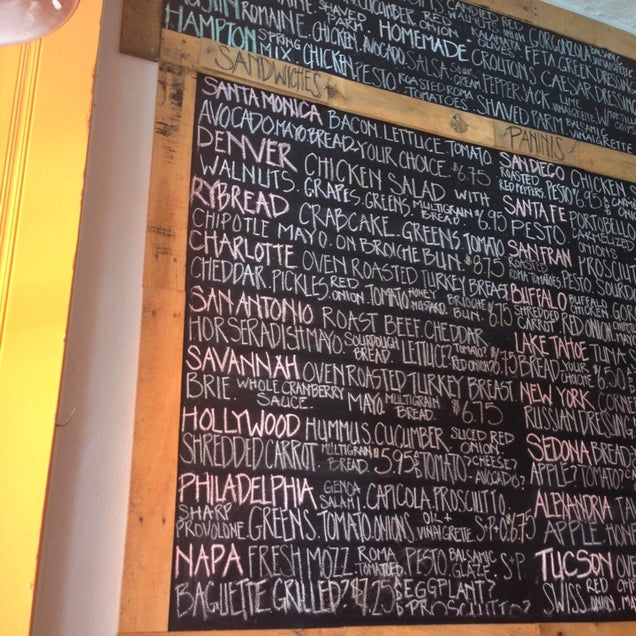 SHAVED PARM CUCUMBER RED ONION KALAMATA GORGONZOLA
ROMAINE HOMEMADE CROUTONS CAESAR DRESSING
FETA GREEK DRESSING
HAMPTON SPRING MIX. CHICKEN. AVOCADO. SALSA. SOUR CREAM PEPPER JACK LIME VINAIGRETTE
PESTO. ROASTED ROMA TOMATOES. SHAVED PARM BALSAMIC VINAIGRETTE
SANDWICHES
SANTA MONICA BACON. LETTUCE. TOMATO
AVOCADO. MAYO. BREAD-YOUR CHOICE. $6.75
DENVER CHICKEN SALAD WITH
WALNUTS. GRAPES. GREENS. MULTIGRAIN BREAD $6.95
RYBREAD CRABCAKE. GREENS. TOMATO
CHIPOTLE MAYO. ON BROICHE BUN. $8.75
CHARLOTTE OVEN ROASTED TURKEY BREAST
CHEDDAR. PICKLES. RED ONION. TOMATO. HONEY MUSTARD. BRIOCHE BUN.
SAN ANTONIO ROAST BEEF. CHEDDAR.
HORSERADISH MAYO. SOURDOUGH BREAD. LETTUCE? TOMATO? RED ONION?
SAVANNAH OVEN ROASTED TURKEY BREAST
BRIE. WHOLE CRANBERRY SAUCE. MAYO. MULTIGRAIN BREAD. $6.75
HOLLYWOOD HUMMUS. CUCUMBER. SLICED RED ONION.
SHREDDED CARROT. MULTIGRAIN BREAD. $5.95 & TOMATO CHEESE? AVOCADO?
PHILADELPHIA GENOA SALAMI. CAPICOLA. PROSCIUTTO.
SHARP PROVOLONE. GREENS. TOMATO. ONIONS. OIL + VINAIGRETTE S+P
NAPA FRESH MOZZ. ROMA TOMATOES. PESTO. BALSAMIC GLAZE. S+P
BAGUETTE GRILLED? $7.25 & EGGPLANT? & PROSCIUTTO?
PANINIS
SAN DIEGO CHICKEN
ROASTED RED PEPPERS. PESTO $6.95
SANTA FE PORTOBELLO
PESTO
SAN FRAN PROSCIU
ROMA TOMATOES PESTO. SOURD
BUFFALO BUFFALO CHICKEN GOR
SHREDDED CARROT RED ONION
LAKE TAHOE TUNA
BREAD YOUR CHOICE $6.50
NEW YORK CORNE
RUSSIAN DRESSING
SEDONA BREAD
APPLE? TOMATO?
ALEXANDRIA
APPLE. HON
TUCSON OVE
SWISS. RED ONION. MA